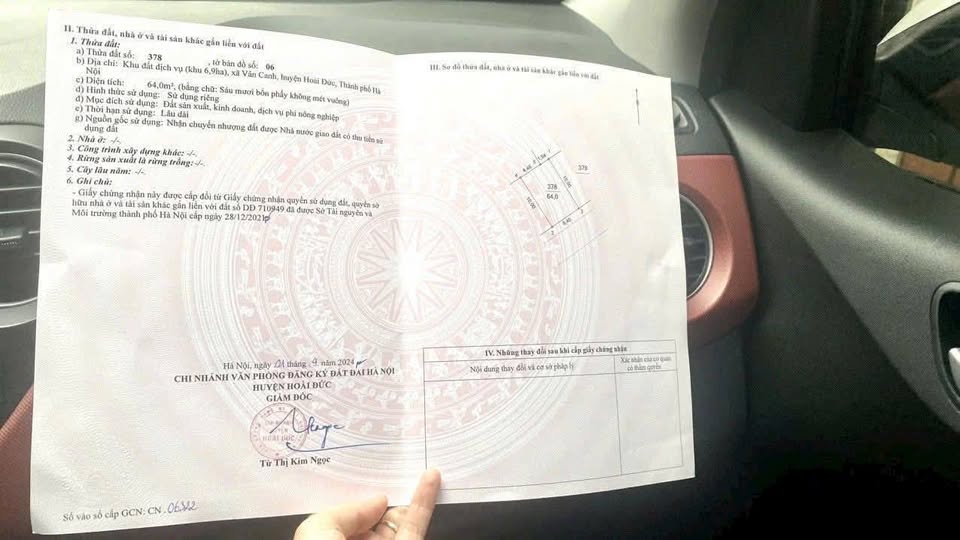 II. Thửa đất, nhà ở và tài sản khác gắn liền với đất
1. Thửa đất:
a) Thửa đất số: 378 , tờ bản đồ số: 06
b) Địa chỉ: Khu đất dịch vụ (khu 6,9ha), xã Vân Canh, huyện Hoài Đức, Thành phố Hà
Nội
c) Diện tích: 64,0m², (bằng chữ: Sáu mươi bốn phẩy không mét vuông)
d) Hình thức sử dụng: Sử dụng riêng
đ) Mục đích sử dụng: Đất sản xuất, kinh doanh, dịch vụ phi nông nghiệp
e) Thời hạn sử dụng: Lâu dài
g) Nguồn gốc sử dụng: Nhận chuyển nhượng đất được Nhà nước giao đất có thu tiền sử
dụng đất
2. Nhà ở: -/-.
3. Công trình xây dựng khác: -/-.
4. Rừng sản xuất là rừng trồng: -/-.
5. Cây lâu năm: -/-.
6. Ghi chú:
- Giấy chứng nhận này được cấp đổi từ Giấy chứng nhận quyền sử dụng đất, quyền sở
hữu nhà ở và tài sản khác gắn liền với đất số DĐ 710949 đã được Sở Tài nguyên và
Môi trường thành phố Hà Nội cấp ngày 28/12/2021
Hà Nội, ngày 21 tháng 9 năm 2024
CHI NHÁNH VĂN PHÒNG ĐĂNG KÝ ĐẤT ĐAI HÀ NỘI
HUYỆN HOÀI ĐỨC
GIÁM ĐỐC
HOÀI ĐỨC
Từ Thị Kim Ngọc
Số vào sổ cấp GCN: CN 06322
III. Sơ đồ thửa đất, nhà ở và tài sản khác gắn liền với đất
378
64,0
379
10.00
10.00
6.40
IV. Những thay đổi sau khi cấp giấy chứng nhận
Nội dung thay đổi và cơ sở pháp lý
Xác nhận của cơ quan
có thẩm quyền